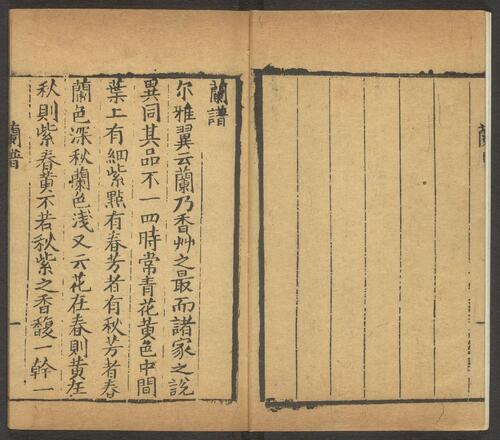 蘭譜
尔雅翼云蘭乃香艸之最而諸家之說
異同其品不一四時常青花黃色中間
葉上有細紫點有春芳者有秋芳者春
蘭色深秋蘭色浅又云花在春則黃在
秋則紫春黃不若秋紫之香馥一幹一
蘭譜
一
蘭
一